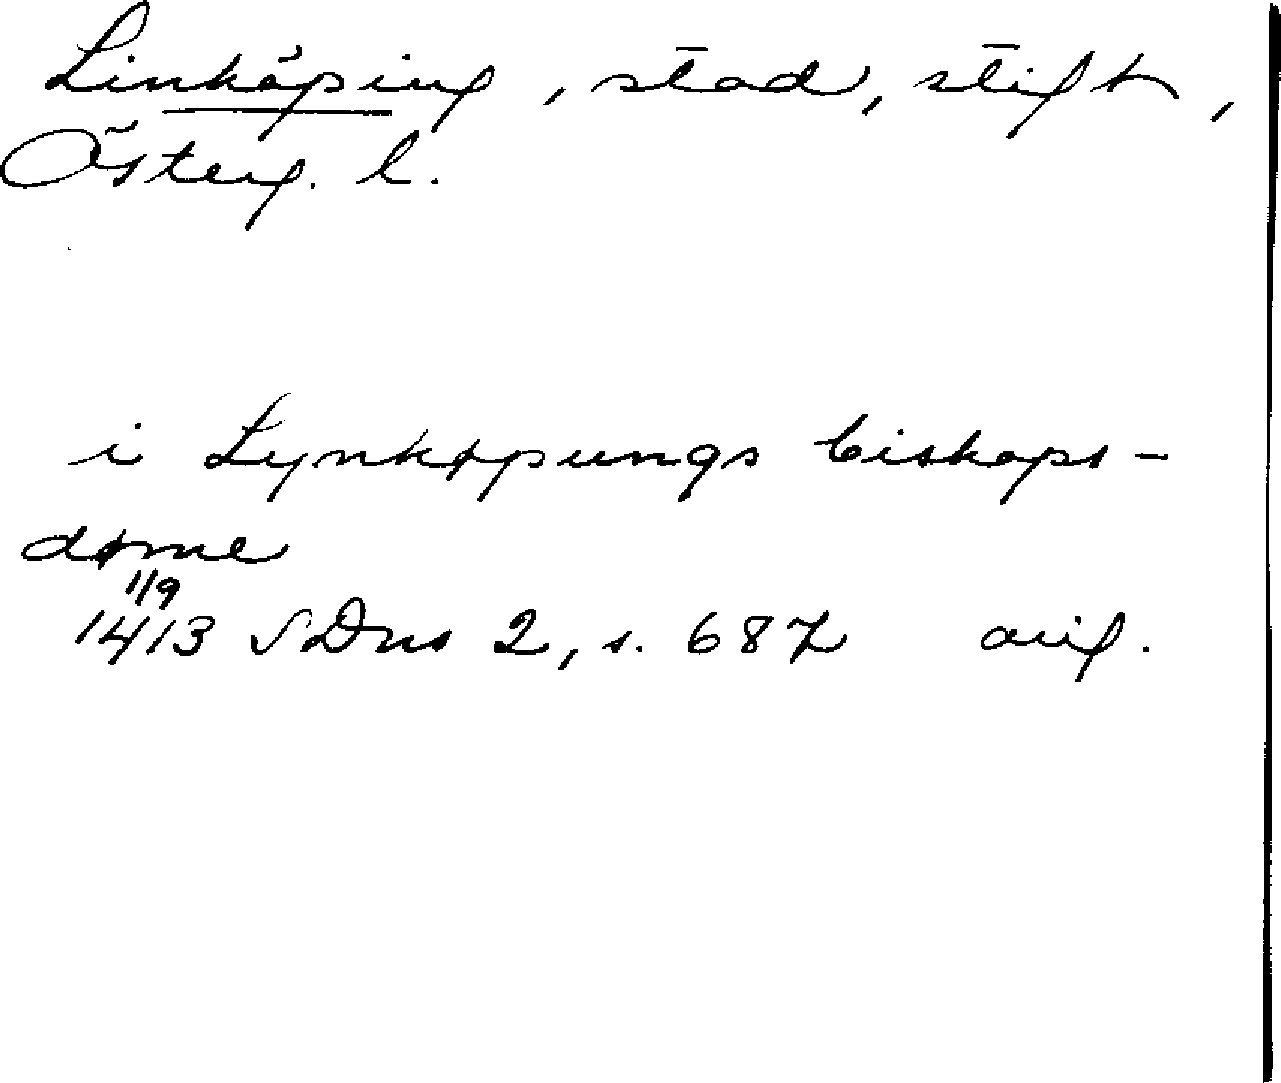 Linköping, stad, stift,
Österg. l.
i Lynkøpungs biskops-
døme
11/9
1413 SDns 2, s. 687 orig.